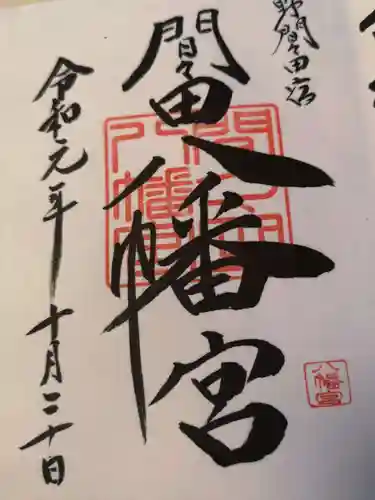 野間々田宿
間々田八幡宮
令和元年十月二十日
間々田
八幡宮
八幡宮